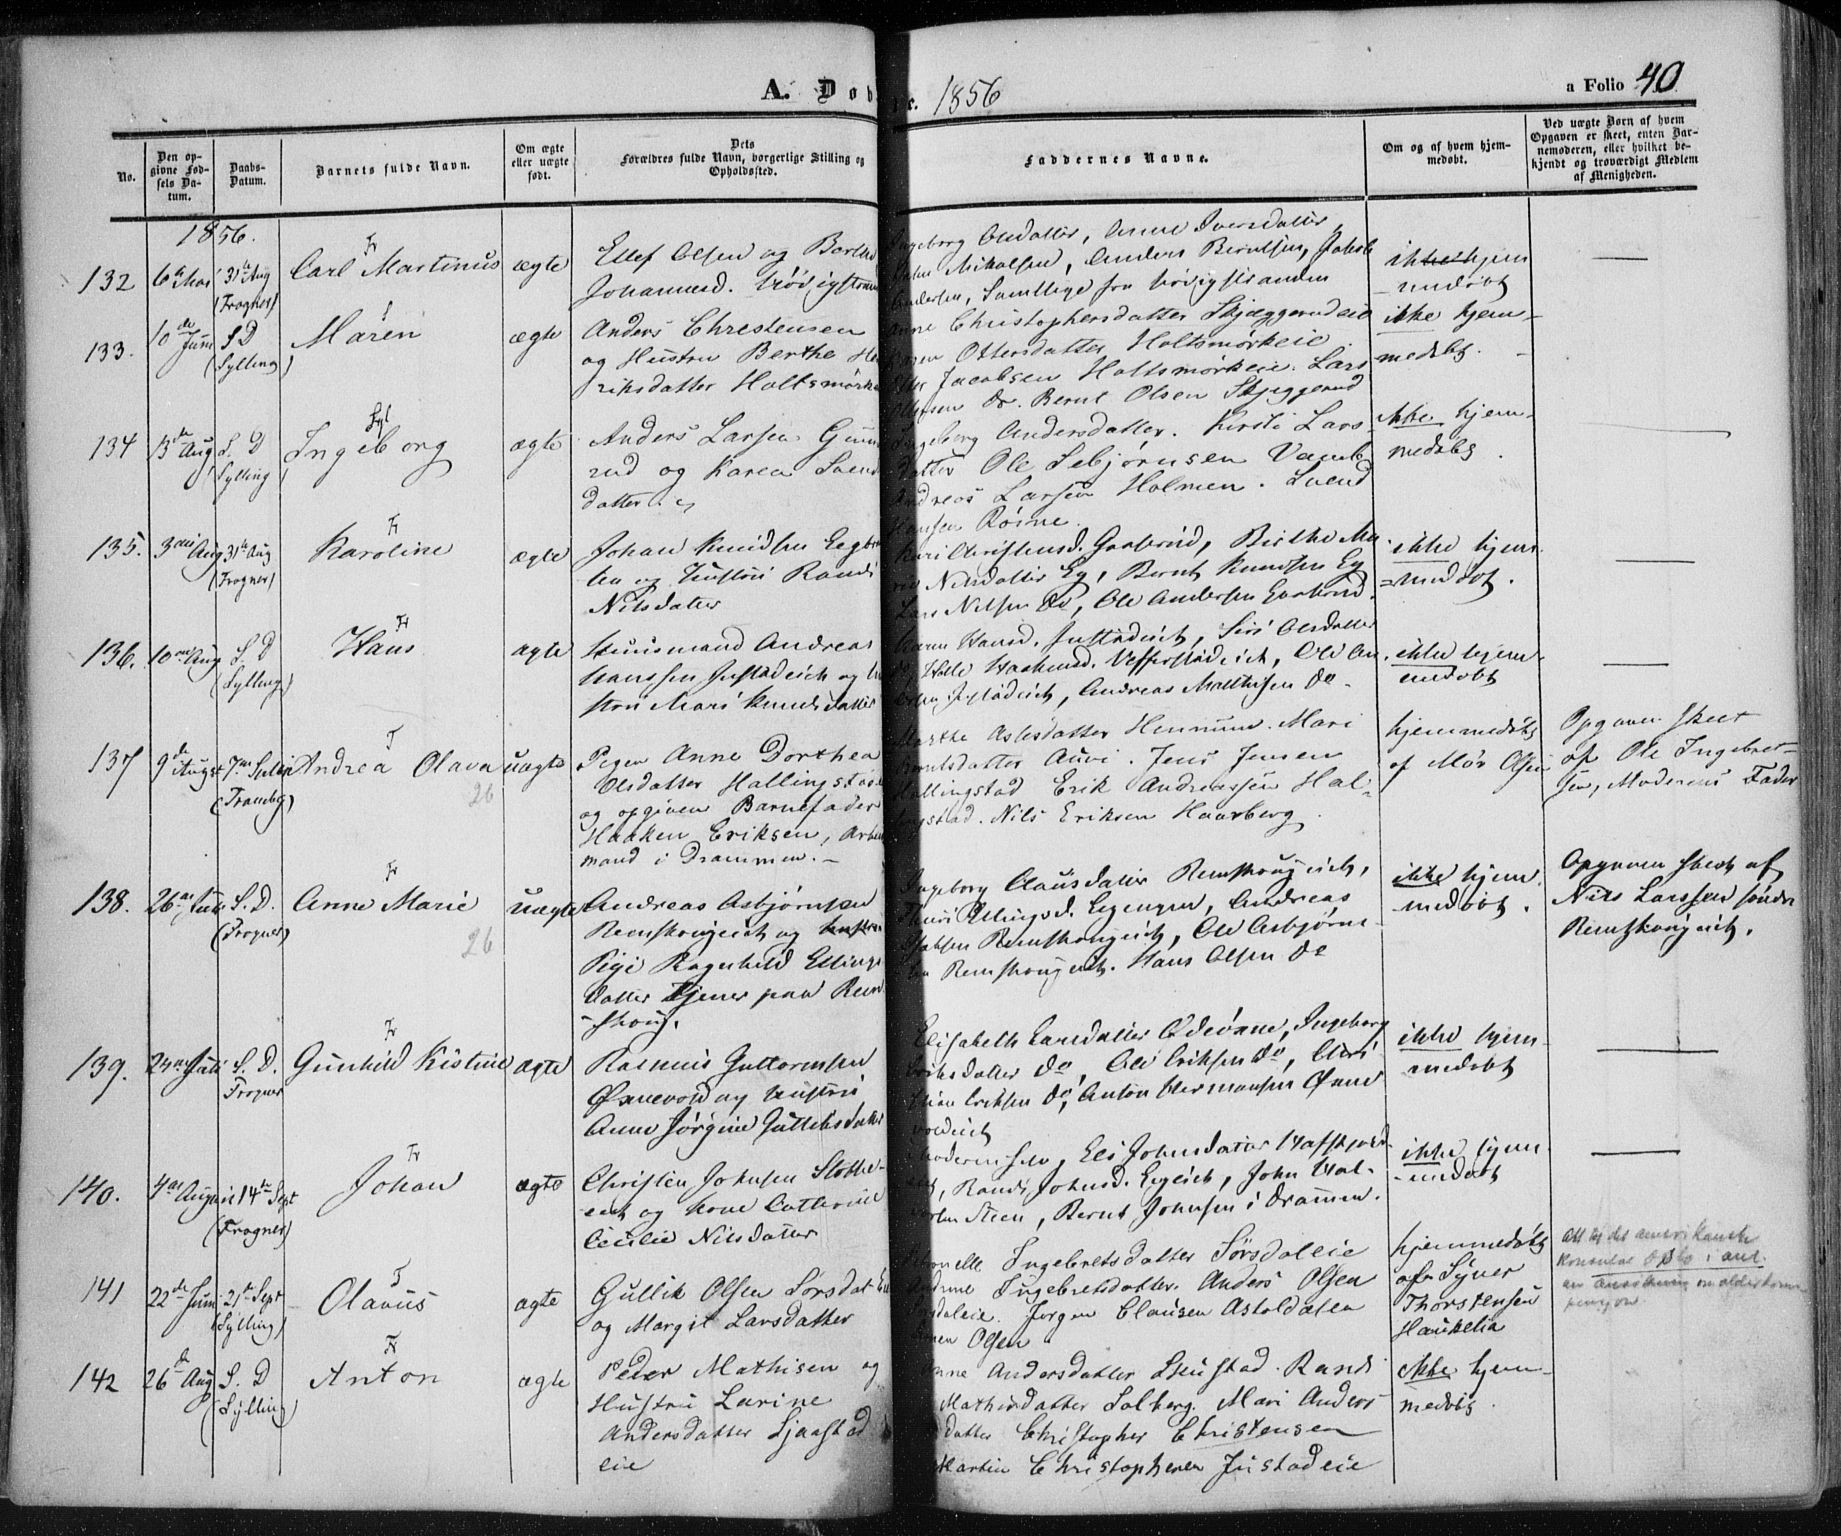 A. Døb
e. 1856
a Folio 40
No.
Den op-
givne Fød-
sels Da-
tum.
Daabs-
Datum.
Barnets fulde Navn.
Om ægte
eller uægte
født.
Dets
Forældres fulde Navn, borgerlige Stilling og
Opholdssted.
Faddernes Navne.
Om og af hvem hjem-
medøbt.
Ved uægte Børn af hvem
Opgaven er skeet, enten Bar-
nemoderen, eller hvilket be-
kjendt og troværdigt Medlem
af Menigheden.
1856.
132
31te Aug
(Frogner)
Fr
Carl Martinus
ægte
Ellef Olsen og Berthe
Johannesd.
Ingeborg Olsdatter, Anne Iversdatter,
Mikolsen, Anders Berntsen, Jakob
Andersen, Samtlige fra
ikke hjem
-medøbt
133.
10de Juni
S D
(Sylling)
Maren
ægte
Anders Chrestensen
og Hustru Berthe He
riksdatter Holtsmørke
Anne Christophersdatter Skjæggerudeie
Karen Ottersdatter Holtsmørkeie.
Jacobsen Holtsmørkeie. Lars
Olsen Do. Bernt Olsen Skjeggerud
ikke hjem-
medøbt.
134
13de Aug
S. D
Sylling
Syl
Ingeborg
ægte
Anders Larsen Gunne
rud og Karen Svends
datter
Ingeborg Andersdatter. Kirsti Lars
datter Ole Sebjørnsen
Andreas Larsen Holmen. Svend
Hansen
ikke hjem-
medøbt.
135.
3die Aug
31te Aug
(Frogner)
Fr
Karoline
ægte
Johan Knudsen
og Hustru Randi
Nilsdatter
Kari Christensd. Berthe Ma
rie Nilsdatter Eg, Bernt Knudsen Eg
Lars Nilsen Do, Ole Andersen
ikke hjem
=medøbt.
136.
10de Aug
S. D
(Sylling)
Fr
Hans
ægte
Huusmand Andreas
Hanssen Justadeie og Hu
stru Mari Knudsdatter
Karen Hansd. Justadeie, Siri Olsdatter
Do, Helle Haakensd. Ole An
dersen Justadeie, Andreas Matthisen Do.
ikke hjem
medøbt
137
9de August
7de Septbr
(Tranby)
T
Andrea Olava
26
uægte
Pigen Anne Dorthea
Olsdatter Hallingstad
og opgiven Barnefader
Haaken Eriksen, Arbei
mand i Drammen. –
Marthe Aslesdatter Hennum. Mari
Berntsdatter Auvi. Jens Jensen
Hallingstad Erik Andreassen Hal-
lingstad. Nils Eriksen Haarberg.
hjemmedøbt
af Mør Olsen
Opgaven skeet
af Ole Ingebret-
sen, Moderens Fader
138.
26de Juli
S. D.
(Frogner)
Fr
Anne Marie
26
uægte
Andreas Asbjørnsen
Remskougeiet og
Pige Ragnhild Ellings
datter tjener paa Rem
-skoug.
Ingeborg Clausdatter Remskougeiet,
Ellingsd. Andreas
Remskougeiet, Ole Asbjørn-
sen Remskougeiet. Hans Olsen Do
ikke hjem
-medøbt.
Opgaven skeet af
Nils Larssen søndre
Remskougeiet.
139.
24de Juli
S. D.
Frogner
Fr
Gunhild Kistine
ægte
Rasmus Guttormsen
Øvnevold og Hustru
Anne Jørgine Gulliksdatter
Elisabeth Larsdatter Ingeborg
Eriksdatter Do, Ole Eriksen Do,
Eriksen Do, Anton Hermansen Øvne
voldeiet
ikke hjem
medøbt
140.
4de August
14de Sept
(Frogner)
Fr
Johan
ægte
Christen Johnsen Slotte-
eiet og Kone Cathrine
Cecilie Nilsdatter
Moderen selv, Eli Johnsdatter
Randi Johnsd. John Hal-
vorsen Steen, Bernt Johnsen i Drammen.
ikke hjem
-medøbt
141
22de Juni
21de Sept
(Sylling)
T
Olavus
ægte
Gullik Olsen Sørsdal Eie
og Margit Larsdatter
Petronelle Ingebretsdatter Sørsdaleie
Ingebretsdatter. Anders Olsen
Sørsdaleie. Jørgen Clausen
Olsen
hjemmedøbt
af Syver
Thorstensen
Haukelia
Att til det amerikanske
Konsulat Oslo i anl.
av ansökning om alderdoms
pensjon
142
26de Aug
S. D
(Sylling)
Fr
Anton
ægte
Peder Mathisen og
Hustru Larine
Andersdatter Sjaastad
eie
Anne Andersdatter Randi
Mathisdatter Solberg. Mari Anders
datter Christopher Christensen
Martin Christophersen Justadeie
ikke hjem-
medøbt.